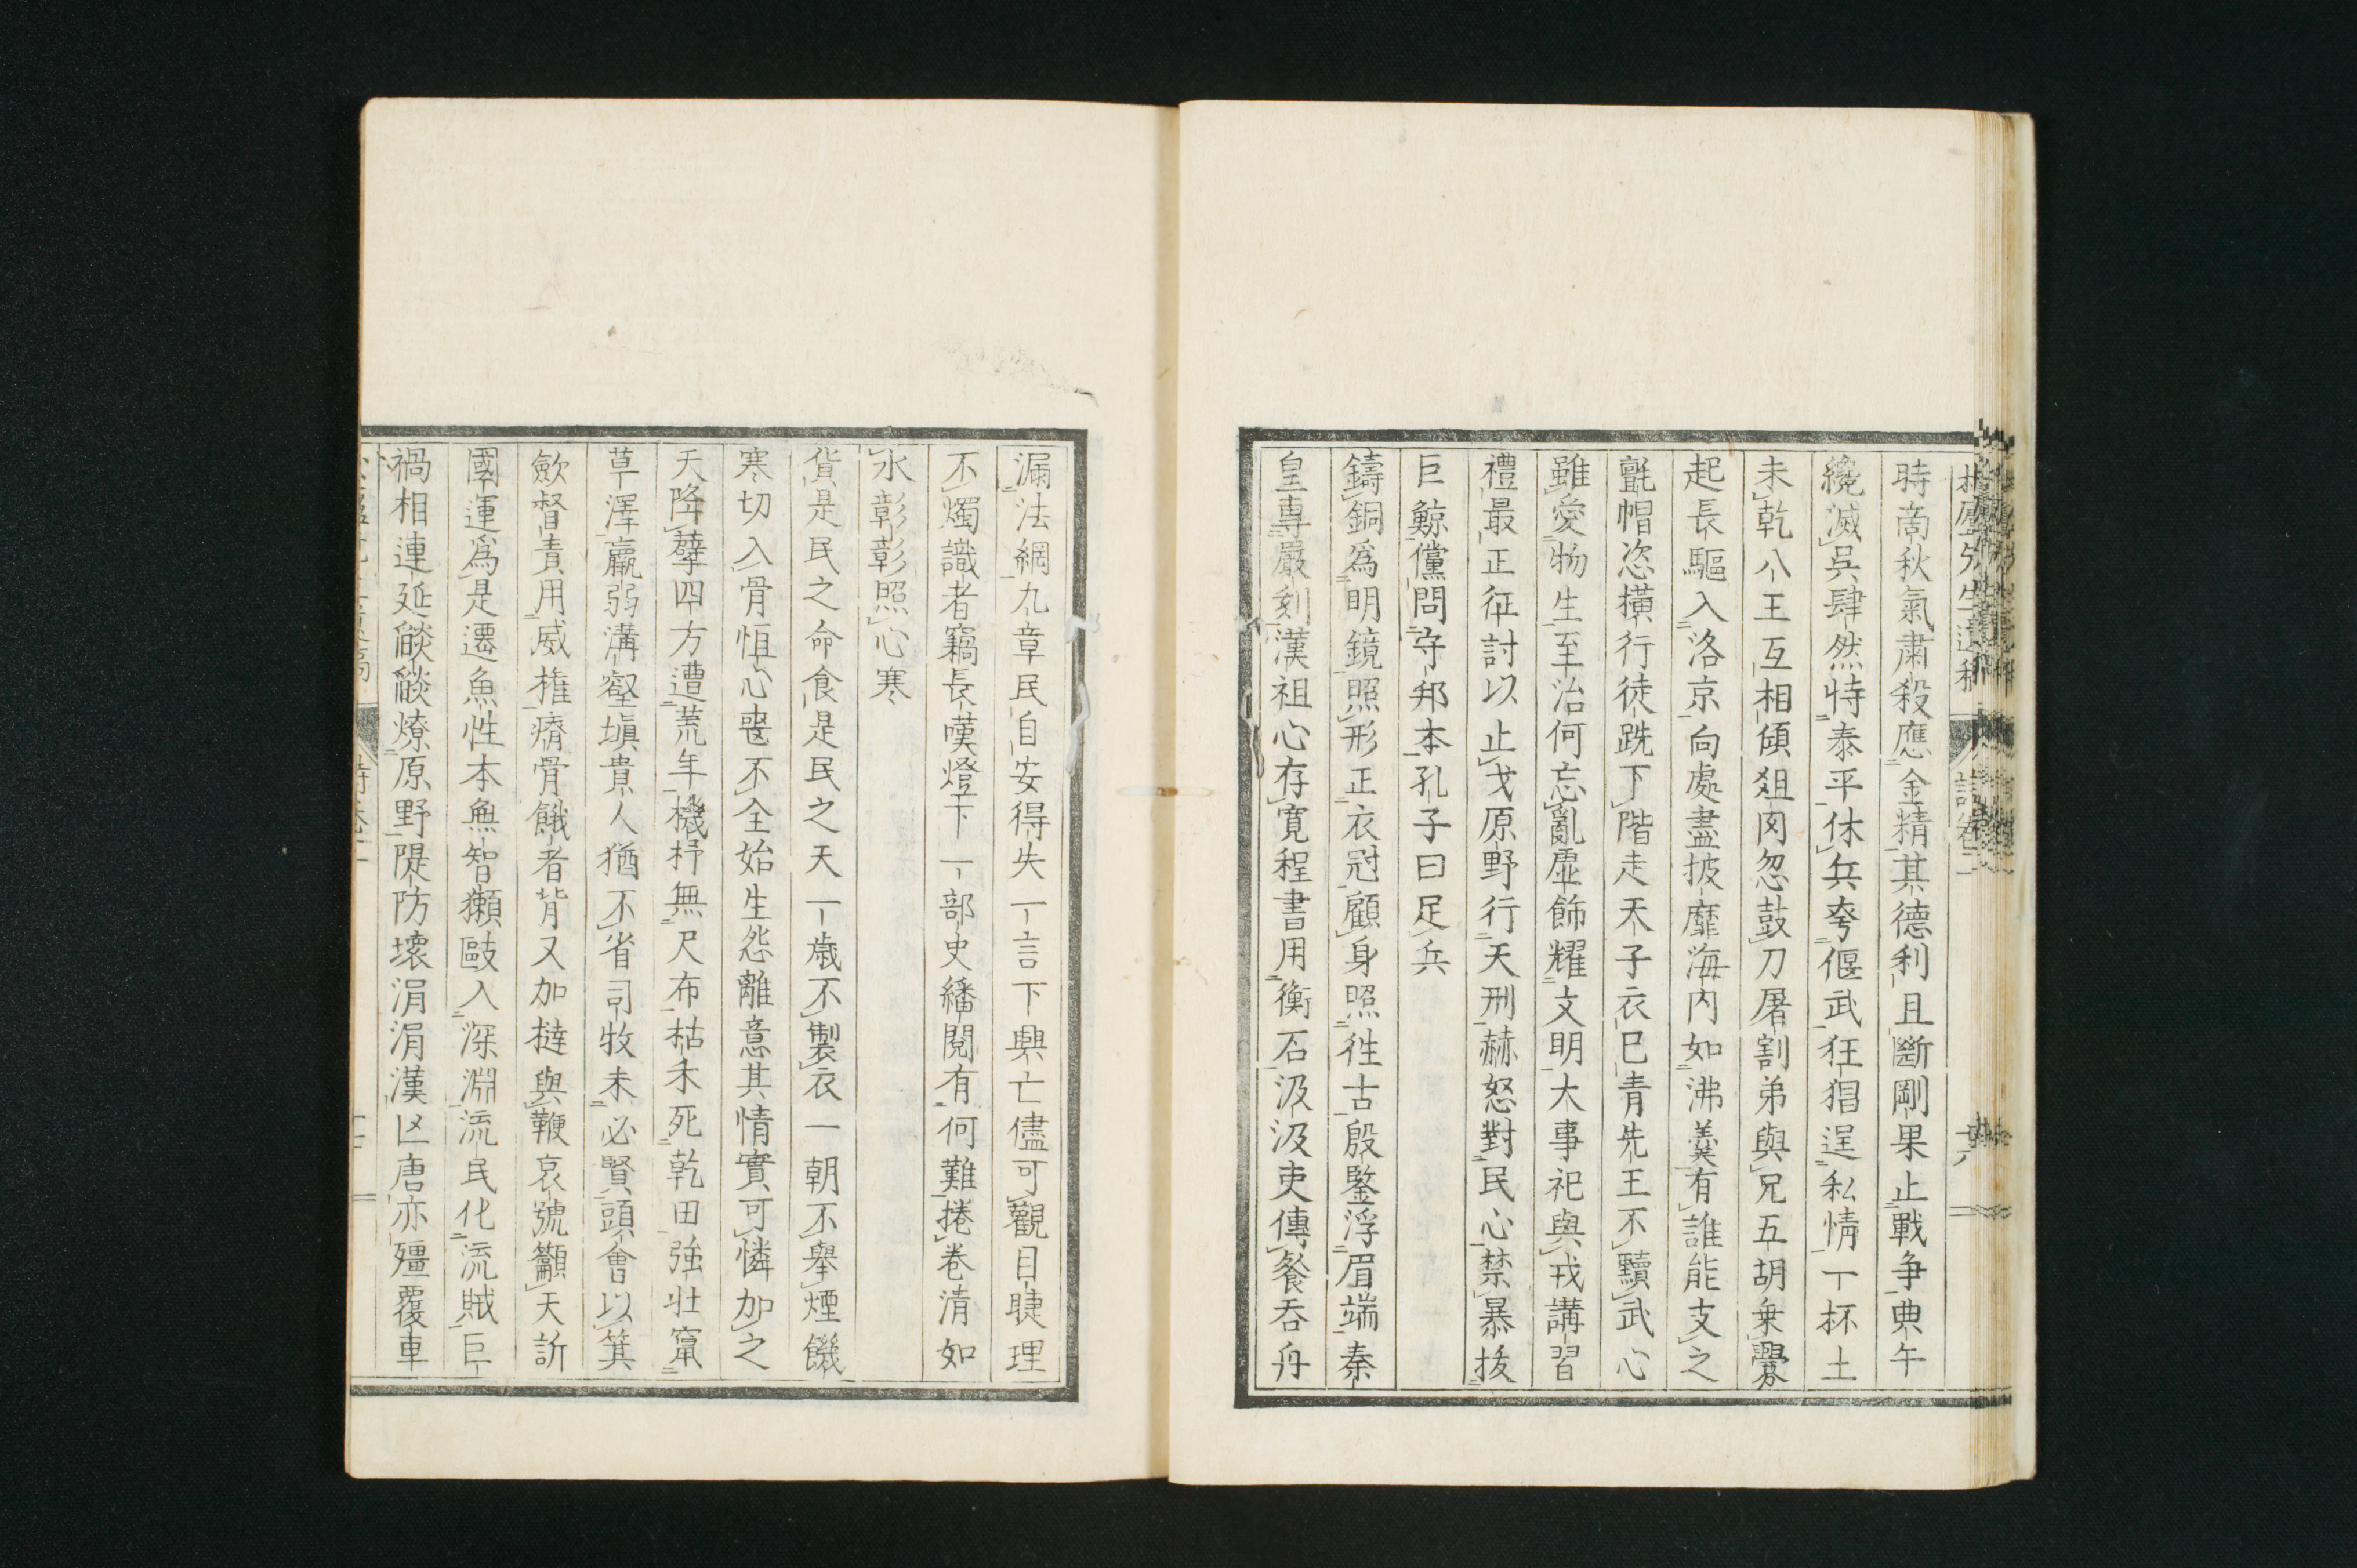 時商秋氣肅殺應金精其德利且斷剛果止戰争典午
纔滅呉肆然恃泰平休兵夸偃武狂猖逞私情一杯土
未乾八王互相傾俎肉忽鼓刀屠割弟與兄五胡乗釁
起長驅入洛京向處盡披靡海内如沸羮有誰能支之
氈帽恣横行徒跣下階走天子衣已青先王不黷武心
雖愛物生至治何忘亂虚飾耀文明大事祀與戎講習
禮最正征討以止戈原野行天刑赫怒對民心禁暴拔
巨鯨儻問守邦本孔子曰足兵
鑄銅為明鏡照形正衣冠顧身照徃古殷鑒浮眉端秦
皇専嚴刻漢祖心存寛程書用衡石汲汲吏傳餐呑舟
漏法網九章民自安得失一言下興亡儘可觀目睫理
不燭識者竊長嘆燈下一部史繙閲有何難捲卷清如
水彰彰照心寒
貨是民之命食是民之天一歳不製衣一朝不擧煙饑
寒切入骨恒心喪不全始生怨離意其情實可憐加之
天降孽四方遭荒年機杼無尺布枯禾死乾田強壮竄
草澤羸弱溝壑塡貴人猶不省司牧未必賢頭會以箕
歛督責用威権瘠骨餓者背又加撻與鞭哀號籲天訴
國運爲是遷魚性本無智獺敺入深淵流民化流賊巨
禍相連延燄燄燎原野隄防壊涓涓漢亾唐亦殭覆車
詩卷二